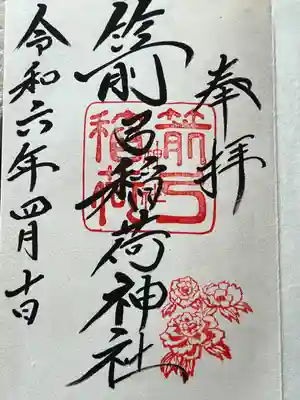 奉拝
箭弓稲荷神社
箭弓
稲荷
令和六年四月十日